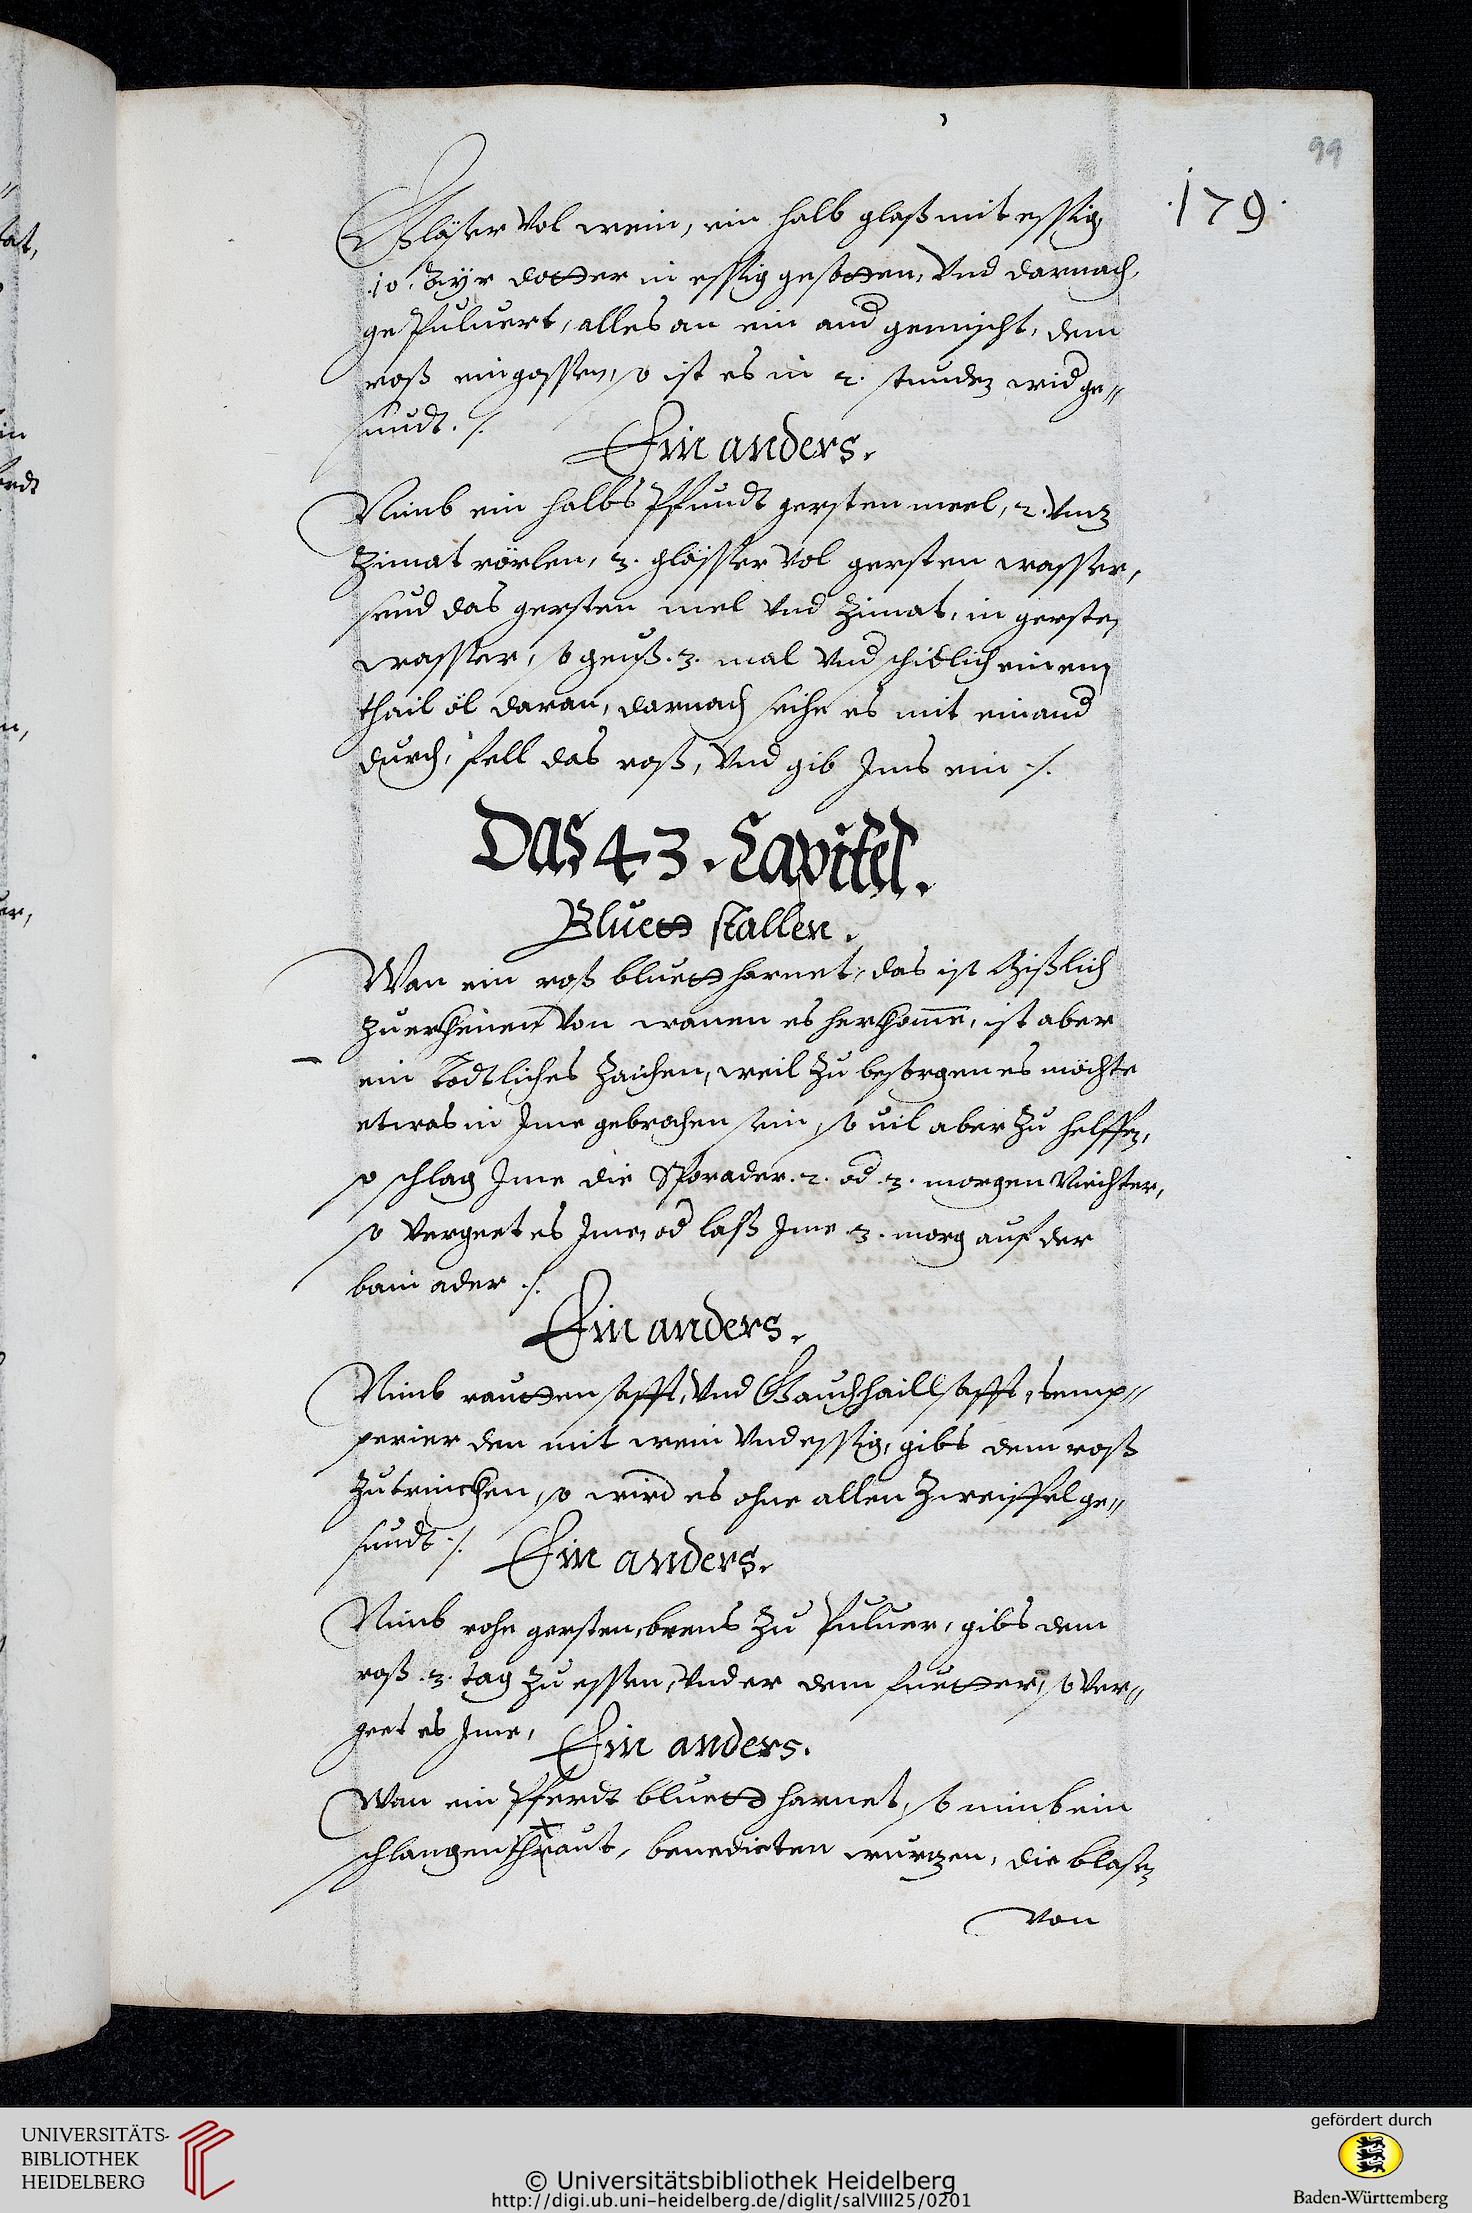 99
.179.
Gläser vol wein, ein halb glaß mit essig,
.10. Ayr dotter in essig gesotten, vnd darnach
gePuluert, alles an ein and gemischt, dem
roß eingossen, so ist es in 2. stunden wid ge„
sundt ./.
Ein anders.
Nimb ein halbs Pfundt gersten meel, 2. vntz
Zimat rörlen, 3. glässer vol gersten wasser,
seud das gersten mel vnd Zimat, in gersten
wasser, so geuß .3. mal vnd schidlich einem
thail öl daran, darnach seihe es mit einand
durch, fell das roß, vnd gib Jms ein ./.
Das 43. Capitel.
Bluett stallen.
Wan ein roß bluett harnet, das ist
zuerkhenen von wanen es herkhome, ist aber
ein Todtliches Zaichen, weil zu besorgen es möchte
etwas in Jme gebrochen sein, so uil aber zu helffen,
so schlag Jme die Sporader .2. od .3. morgen Niechter,
so vergeet es Jme, od laß Jme .3. morg auf der
bain ader ./.
Ein anders.
Nimb rautten safft, vnd Gauchhaill safft, temp„
perier den mit wein vnd essig, gibs dem roß
zutrinckhen, so wird es ohne allen Zweiffel ge„
sundt ./.
Ein anders.
Nimb rohe gersten, brens zu Puluer, gibs dem
roß .3. tag zu essen, vnder dem fuetter, so ver„
geet es Jme,
Ein anders.
Wan ein Pferdt bluett harnet, so nimb ein
schlangenkhraut, benedicten wurzen, die blasen
von
UNIVERSITÄTS-
BIBLIOTHEK
HEIDELBERG
© Universitätsbibliothek Heidelberg
http://digi.ub.uni-heidelberg.de/diglit/salVIII25/0201
gefördert durch
Baden-Württemberg